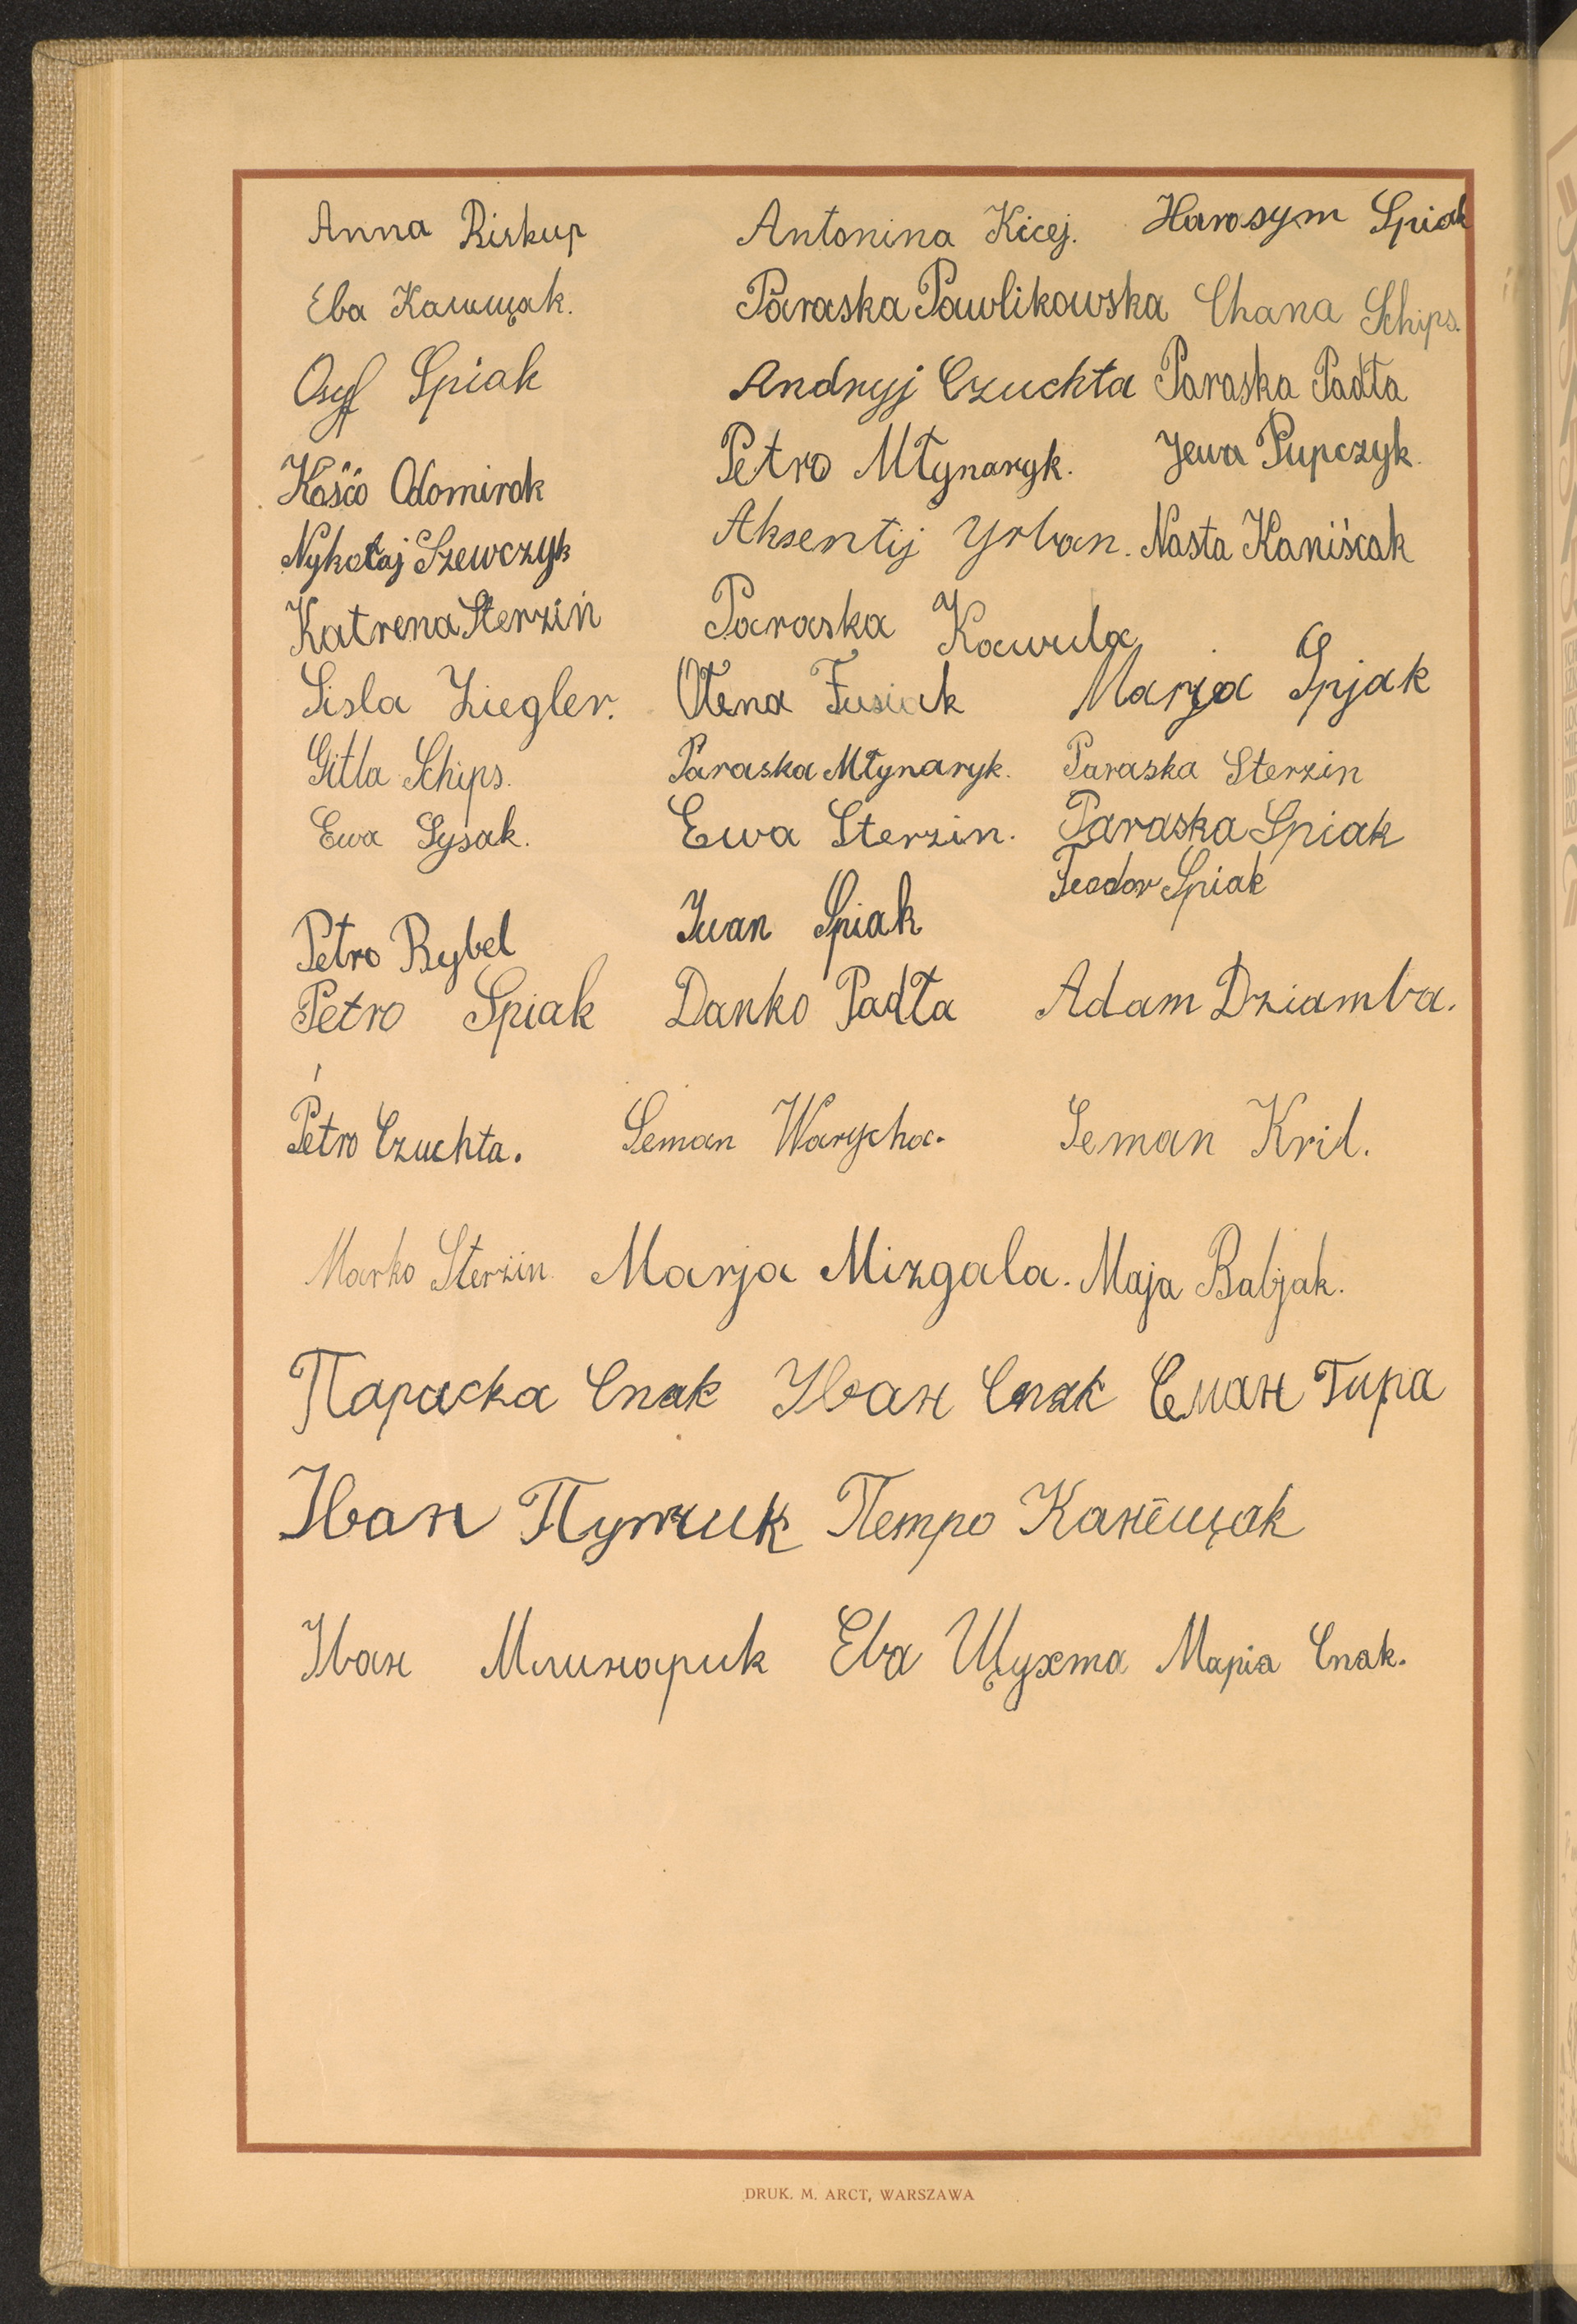 Anna Biskup Antonina Kicej. Harosym Spiak
Ева Канищак. Paraska Pawlikowska Chana Schips.
Osyf Spiak Andryj Czuchta Paraska Padła
Kośćo Odomirok Petro Młynaryk. Jewa Pupczyk.
Nykołaj Szewczyk Aksentij Yrban. Nasta Kaniścak
Katrena Sterziń Paraska Kawula
Sisla Ziegler. Ołena Fusiak Marja Spjak
Gitla Schips. Paraska Młynaryk. Paraska Sterzin
Ewa Sysak. Ewa Sterzin. Paraska Spiak
Teodor Spiak
Petro Rybel Iwan Spiak
Petro Spiak Danko Padła Adam Dziamba.
Petro Czuchta. Seman Warycha. Seman Kril.
Marko Sterzin. Marja Mizgala. Maja Babjak.
Параска Спак Іван Спак Семан Гира
Іван Пупчик Петро Канїщак
Іван Млинарик Ева Щухта Марія Спак.
DRUK. M. ARCT, WARSZAWA